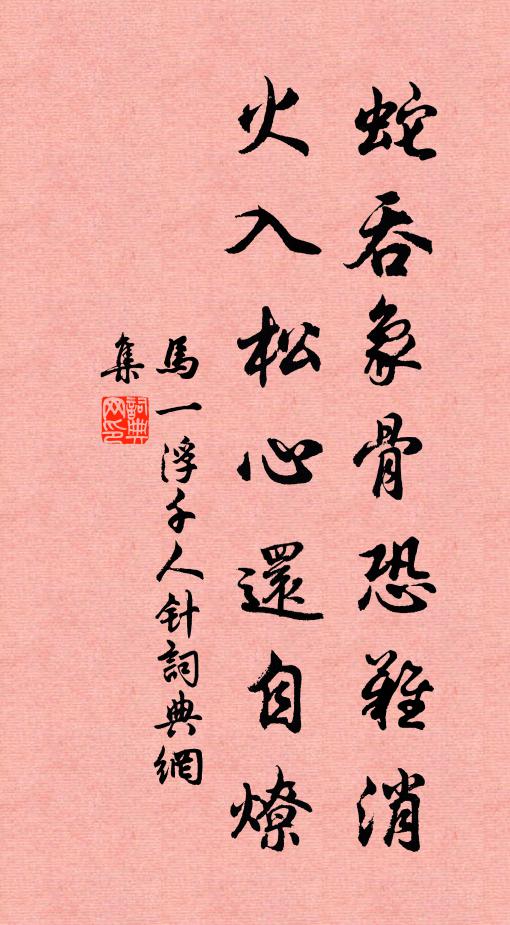 蛇吞象骨恐難消
火入松心還自燎
馬一浮千人针詞典網
集
詞典
网印